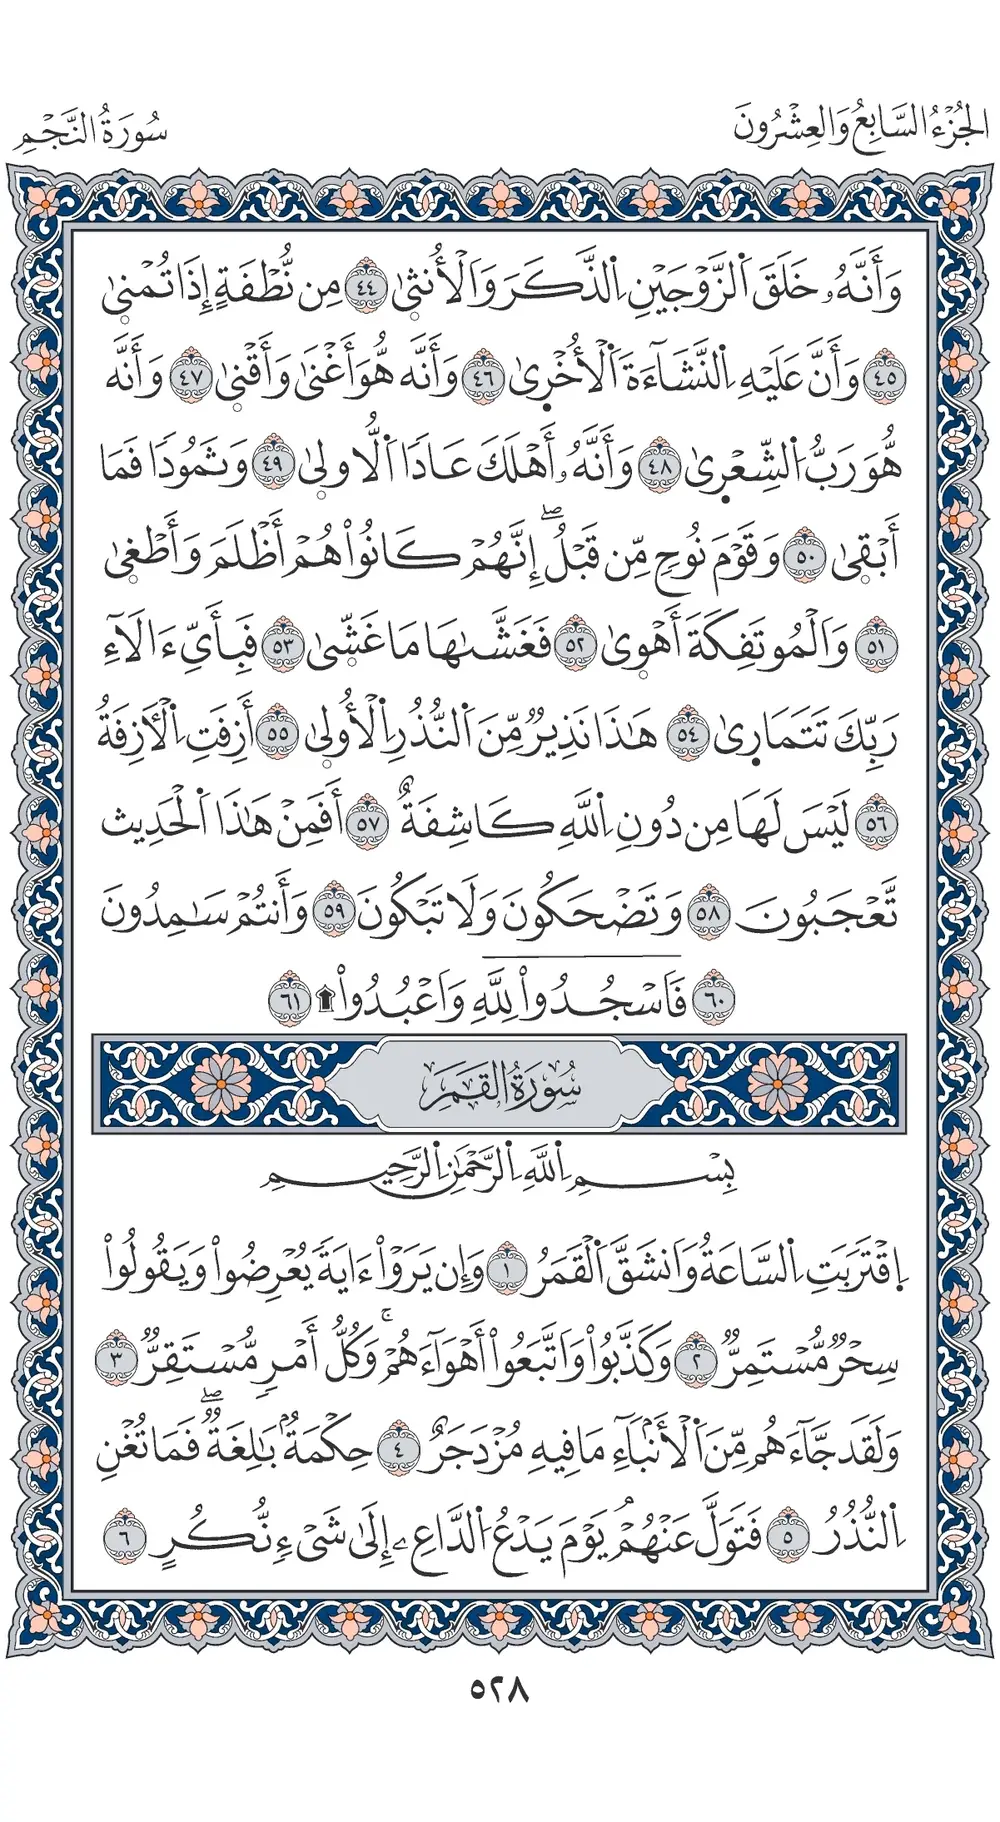 الجُزْءُ السَّابِعُ وَالعِشْرُونَ
سُورَةُ النَّجْمِ
وَأَنَّهُۥ خَلَقَ اَ۬لزَّوْجَيْنِ اِ۬لذَّكَرَ وَالْأُنث۪ىٰ ٤٤ مِن نُّطْفَةٍ إِذَا تُمْن۪ىٰ
٤٥ وَأَنَّ عَلَيْهِ اِ۬لنَّشَآءَةَ اَ۬لْأُخْر۪ىٰ ٤٦ وَأَنَّه هُّوَ أَغْنَىٰ وَأَقْن۪ىٰ ٤٧ وَأَنَّه
هُّوَ رَبُّ اُ۬لشِّعْر۪ىٰ ٤٨ وَأَنَّهُۥ أَهْلَكَ عَادَا اَ۬لُّاول۪ىٰ ٤٩ وَثَمُودٗا فَمَا
أَبْق۪ىٰ ٥٠ وَقَوْمَ نُوحٖ مِّن قَبْلُۖ إِنَّهُمْ كَانُواْ هُمْ أَظْلَمَ وَأَطْغ۪ىٰ
٥١ وَالْمُوتَفِكَةَ أَهْو۪ىٰ ٥٢ فَغَشَّىٰهَا مَا غَشّ۪ىٰ ٥٣ فَبِأَيِّ ءَالَآءِ
رَبِّكَ تَتَمَار۪ىٰ ٥٤ هَٰذَا نَذِيرٞ مِّنَ اَ۬لنُّذُرِ اِ۬لْأُول۪ىٰ ٥٥ أَزِفَتِ اِ۬لْأٓزِفَةُ
٥٦ لَيْسَ لَهَا مِن دُونِ اِ۬للَّهِ كَاشِفَةٌ ٥٧ أَفَمِنْ هَٰذَا اَ۬لْحَدِيث
تَّعْجَبُونَ ٥٨ وَتَضْحَكُونَ وَلَا تَبْكُونَ ٥٩ وَأَنتُمْ سَٰمِدُونَ
٦٠ فَاسْجُدُواْ لِلَّهِ وَاعْبُدُواْ ۩ ٦١
سُورَةُ القَمَرِ
بِسْمِ اِ۬للَّهِ اِ۬لرَّحْمَٰنِ اِ۬لرَّحِيمِ
اِ۪قْتَرَبَتِ اِ۬لسَّاعَةُ وَانشَقَّ اَ۬لْقَمَرُ ١ وَإِن يَرَوْاْ ءَايَةٗ يُعْرِضُواْ وَيَقُولُواْ
سِحْرٞ مُّسْتَمِرّٞ ٢ وَكَذَّبُواْ وَاتَّبَعُواْ أَهْوَآءَهُمْۚ وَكُلُّ أَمْرٖ مُّسْتَقِرّٞ ٣
وَلَقَد جَّآءَهُم مِّنَ اَ۬لْأَنۢبَآءِ مَا فِيهِ مُزْدَجَرٌ ٤ حِكْمَةُۢ بَٰلِغَةٞۖ فَمَا تُغْنِ
اِ۬لنُّذُرُ ٥ فَتَوَلَّ عَنْهُمُۘ يَوْمَ يَدْعُ اُ۬لدَّاعِۦ إِلَىٰ شَيْءٖ نُّكُرٍ ٦
٥٢٨